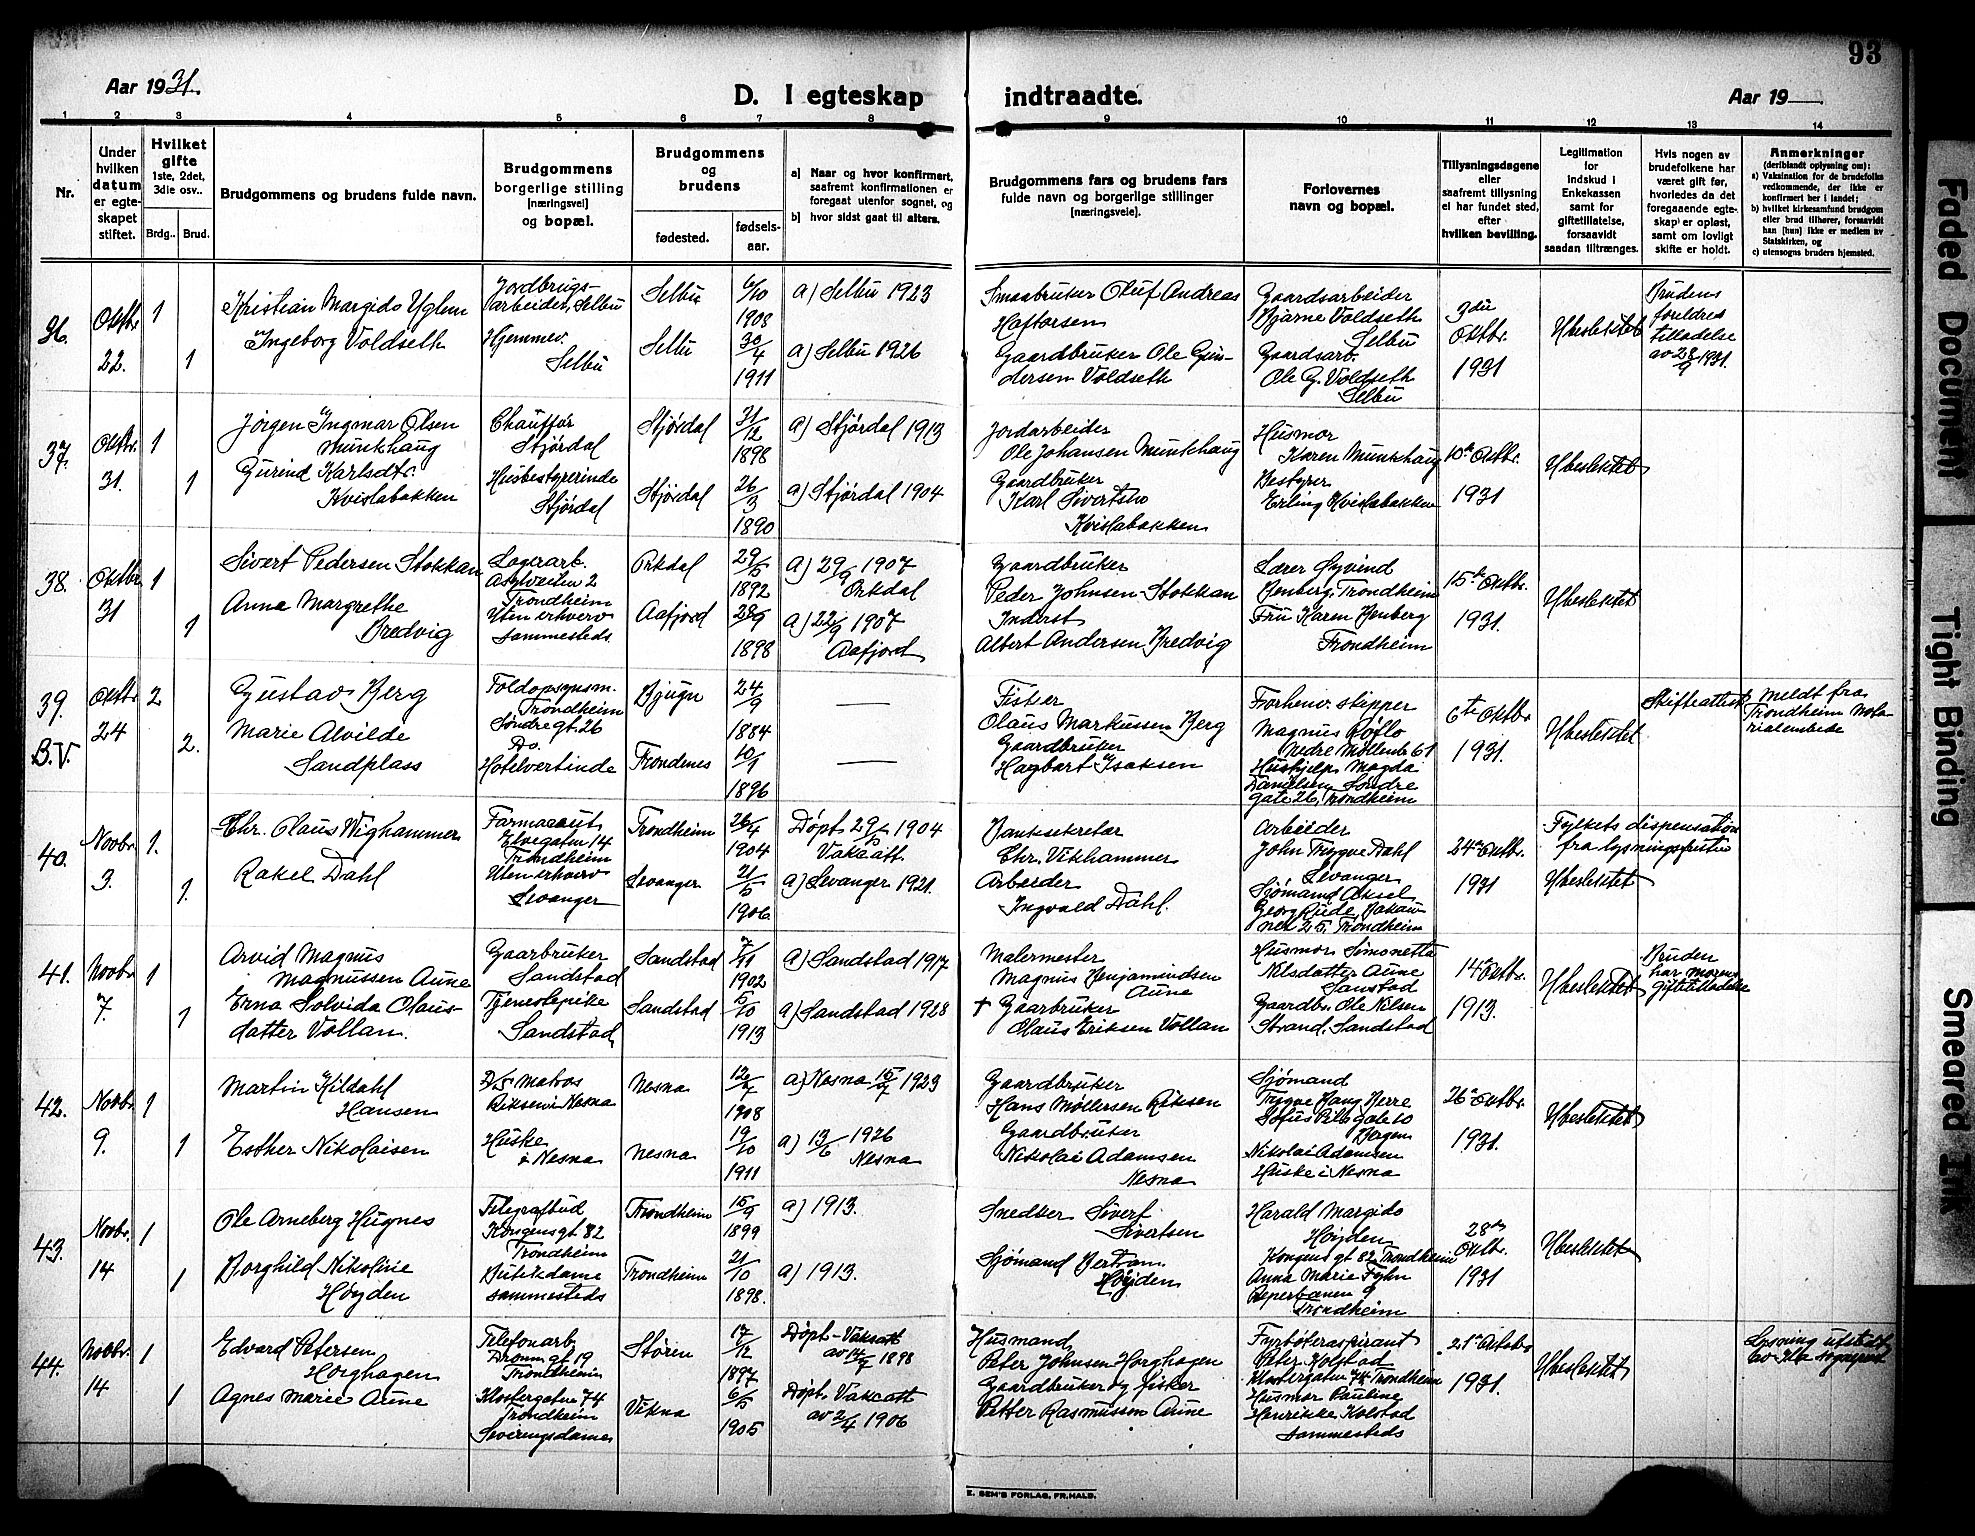 93
Aar 1931.
D. I egteskap indtraadte.
Aar 19
1 2 3 4 5 6 7 8 9 10 11 12 13 14
Nr.
Under
hvilken
datum
er egte-
skapet
stiftet.
Hvilket
gifte
1ste, 2det,
3die osv..
Brdg.. Brud.
Brudgommens og brudens fulde navn.
Brudgommens
borgerlige stilling
[næringsvei]
og bopæl.
Brudgommens
og
brudens
fødested.
fødsels-
aar.
a) Naar og hvor konfirmert,
saafremt konfirmationen er
foregaat utenfor sognet, og
b) hvor sidst gaat til alters.
Brudgommens fars og brudens fars
fulde navn og borgerlige stillinger
[næringsveie].
Forlovernes
navn og bopæl.
Tillysningsdagene
eller
saafremt tillysning
ei har fundet sted,
efter
hvilken bevilling.
Legitimation
for
indskud i
Enkekassen
samt for
giftetillatelse,
forsaavidt
saadan tiltrænges.
Hvis nogen av
brudefolkene har
været gift før,
hvorledes da det
foregaaende egte-
skap er opløst,
samt om lovligt
skifte er holdt.
Anmerkninger
(deriblandt oplysning om):
a) Vaksination for de brudefolks
vedkommende, der ikke er
konfirmert her i landet;
b) hvilket kirkesamfund brudgom
eller brud tilhører, forsaavidt
han [hun] ikke er medlem av
Statskirken, og
c) utensogns bruders hjemsted.
36.
Oktbr.
22.
1
1
Kristian Margido Uglem
Ingeborg Voldseth
Jordbrugs-
arbeider, Selbu
Hjemmev.
Selbu
Selbu
Selbu
6/10
1908
30/4
1911
a) Selbu 1923
a) Selbu 1926
Smaabruker Oluf Andreas
Haftorsen
Gaardbruker Ole Gun-
dersen Voldseth
Gaardsarbeider
Bjarne Voldseth
Selbu
Gaardsarb.
Ole G. Voldseth
Selbu
3die
Oktbr.
1931
Ubeslektet
Brudens
foreldres
tilladelse
av 28/9 1931.
37.
Oktbr.
31.
1
1
Jørgen Ingmar Olsen
Munkhaug
Gurind Karlsdtr.
Kvislabakken
Chauffør
Stjørdal
Husbestyrerinde
Stjørdal
Stjørdal
Stjørdal
31/12
1898
26/3
1890
a) Stjørdal 1913
a) Stjørdal 1904
Jordarbeider
Ole Johansen Munkhaug
Gaardbruker
Karl Sivertsen
Kvislabakken
Husmor
Karen Munkhaug
Bestyrer
Erling Kvislabakken
10de Oktbr.
1931
Ubeslektet
38.
Oktbr.
31
1
1
Sivert Pedersen Stokkan
Anna Margrethe
Bredvig
Lagerarb.
Asylveiten 2
Trondheim
Uten erhverv
sammesteds
Orkdal
Aafjord
29/5
1892
28/9
1898
a) 29/9 1907
Orkdal
a) 22/9 1907
Aafjord
Gaardbruker
Peder Johnsen Stokkan
Inderst
Albert Andersen Bredvig
Lærer Øyvind
Benberg, Trondheim
Fru Karen Benberg
Trondheim
15de Oktbr.
1931.
Ubeslektet
39.
B.V.
Oktbr.
24
2
2.
Gustav Berg
Marie Alvilde
Sandplass
Foldopsynsm.
Trondheim
Søndregt. 26
Do.
Hotelvertinde
Bjugn
Trondenes
24/9
1884
10/1
1896
Fisker
Olaus Markussen Berg
Gaardbruker
Hagbart Isaksen
Forhenv. skipper
Magnus Røflo
nedre Møllenb 61
Hushjelp Magda
Danielsen Søndre
gate 26, Trondheim
6te Oktbr
1931.
Ubeslektet
Skifteattest
Meldt fra
Trondheim Nota-
rialembede
40.
Novbr.
3.
1.
1.
Chr. Olaus Wighammer
Rakel Dahl
Farmaceut
Elvegaten 14
Trondheim
Uten erhverv
Levanger
Trondheim
Levanger
26/4
1904
21/5
1906
Døpt 29/5 1904
Vakcatt.
a) Levanger 1921.
Banksekretær
Chr. Vikhammer
Arbeider
Ingvald Dahl.
Arbeider
John Trygve Dahl
Levanger
Sjømand Aksel
Georg Rude, Bakau-
net 25, Trondheim
24de Oktbr.
1931
Fylkets dispensation
fra lysningsfristen
Ubeslektet
41.
Novbr
7.
1
1
Arvid Magnus
Magnussen Aune
Erna Solvida Olaus-
datter Vollan.
Gaarbruker
Sandstad
Tjenestepike
Sandstad
Sandstad
Sandstad
7/11
1902
5/10
1913
a) Sandstad 1917
a) Sandstad 1928
Malermester
Magnus Benjamindsen
Aune
† Gaarbruker
Olaus Eriksen Vollan
Husmor Simonetta
Nilsdatter Aune
Sanstad
Gaardbr. Ole Nilsen
Strand, Sandstad
14de Oktbr.
1913.
Ubeslektet
Bruden
har morens
giftetilladelse
42.
Novbr
9.
1
1
Martin Kildahl
Hansen
Esther Nikolaisen
D/S matros
Riksen i Nesna
Huske
i Nesna
Nesna
Nesna
12/7
1908
19/10
1911
a) Nesna 15/7 1923
a) 13/6 1926
Nesna
Gaardbruker
Hans Møllersen Riksen
Gaardbruker
Nikolai Adamsen
Nesna
Sjømand
Trygve Haug Berre
Sofus Pihls gate 10
Bergen
Nikolai Adamsen
Huske i Nesna
26de Oktbr.
1931.
Ubeslektet
43.
Novbr.
14
1
1
Ole Arneberg Hugnes
Borghild Nikoline
Høyden
Telegrafbud
Kongensgt 82
Trondheim
Butikdame
sammesteds
Trondheim
Trondheim
15/9
1899
21/10
1898.
a) 1913.
a) 1913.
Snedker Sivert
Sivertsen
Sjømand Bertram
Høyden
Harald Margido
Høyden
Kongens gt 82 Trondheim
Anna Marie Fyhn
Reperbanen 9
Trondheim
28de
Oktbr.
1931
Ubeslektet
44.
Novbr.
14
1
1
Edvard Petersen
Horghagen
Agnes Marie Aune
Telefonarb.
Dronn. gt 19
Trondheim
Klostergaten 74
Trondheim
Serveringsdame
Støren
Vikna
17/12
1897
6/5
1905
Døpt - Vakcatt
av 14/7 1898
Døpt. Vakcatt
av 2/4 1906
Husmand
Peter Johnsen Horghagen
Gaardbruker og fisker
Petter Rasmussen Aune
Fyrbøteraspirant
Peter Kolstad
Klostergaten 74 Trondheim
Husmor Pauline
Henrikke Kolstad
sammesteds
21de Oktober
1931.
Ubeslektet
Lysning utstedt
av Ile sogneprest
E. SEM'S FORLAG, FR.HALD.
Faded Document
Tight Binding
Smeared Ink